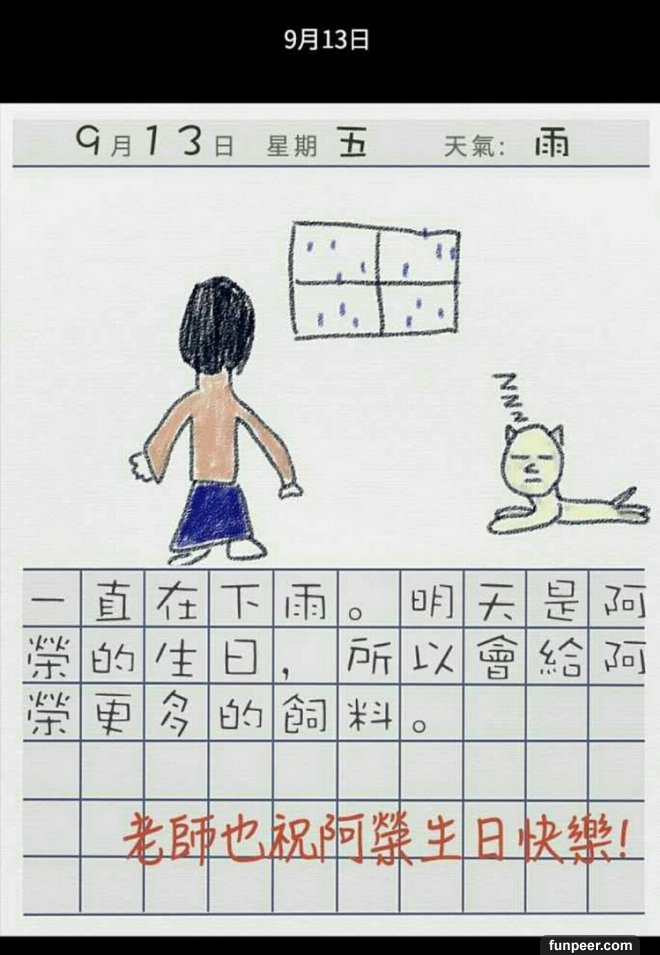 9月13日
9月13日 星期 五 天氣: 雨
一直在下雨。明天是阿
榮的生日,所以會給阿
榮更多的飼料。
老師也祝阿榮生日快樂!
funpeer.com